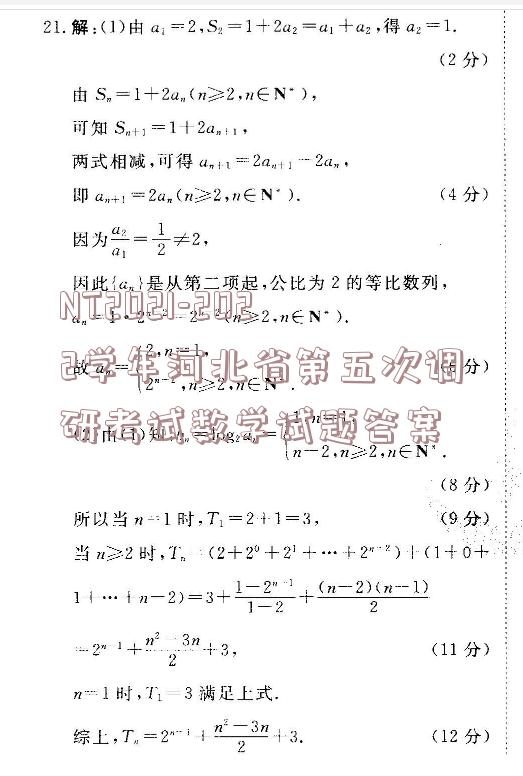 21.解:(1)由 a₁=2,S₂=1+2a₂=a₁+a₂,得 a₂=1.
(2分)
由 Sₙ=1+2aₙ(n≥2,n∈N*),
可知 Sₙ₊₁=1+2aₙ₊₁,
两式相减,可得 aₙ₊₁=2aₙ₊₁-2aₙ,
即 aₙ₊₁=2aₙ(n≥2,n∈N*). (4分)
因为a₂/a₁=1/2≠2,
因此{aₙ}是从第二项起,公比为 2 的等比数列,
NT2021-202
aₙ=1·2ⁿ⁻²=2ⁿ⁻²(n≥2,n∈N*).
2学年河北省第五次调
故 aₙ={2,n=1, 2ⁿ⁻²,n≥2,n∈N*. 分)
研考试数学试题答案
(2)由(1)知 =log₂aₙ={1,n=1, n-2,n≥2,n∈N*.
(8分)
所以当 n=1 时,T₁=2+1=3, (9分)
当 n≥2 时,Tₙ=(2+2⁰+2¹+⋯+2ⁿ⁻²)+(1+0+
1+⋯+n-2)=3+(1-2ⁿ⁻¹)/(1-2)+(n-2)(n-1)/2
=2ⁿ⁻¹+(n²-3n)/2+3, (11分)
n=1 时,T₁=3 满足上式.
综上,Tₙ=2ⁿ⁻¹+(n²-3n)/2+3. (12分)